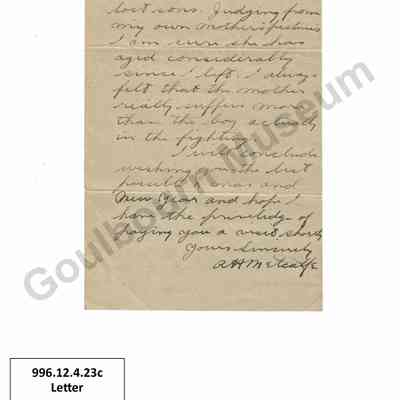 lost sons. Judging from
my own mother's pictures
I am sure she has
aged considerably
since I left. I always
felt that the mother
really suffers more
than the boy actually
in the fighting.
I will conclude
wishing you the best
possible Xmas and
New Year and hope I
have the priviledge of
paying you a visit shortly
Yours Sincerely
A H Metcalfe
Goulbourn Museum
996.12.4.23c
Letter